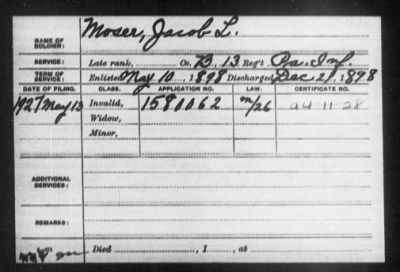 NAME OF SOLDIER: Moser, Jacob L.
SERVICE: Late rank, Co. B, 13 Reg't Pa. Inf.
TERM OF SERVICE: Enlisted May 10, 1898 Discharged Dec. 21, 1898
DATE OF FILING. CLASS. APPLICATION NO. LAW. CERTIFICATE NO.
1927 May 13 Invalid, 1581062
Widow,
Minor,
ADDITIONAL SERVICES:
REMARKS:
Died , 1 , at